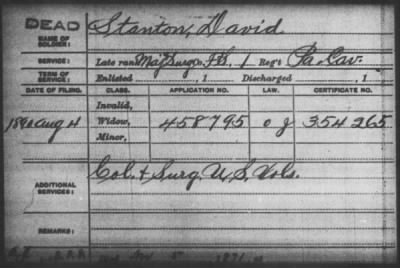 DEAD
NAME OF SOLDIER: Stanton, David
SERVICE: Late rank Maj & Surg Co. F&S, 1 Reg't Pa. Cav.
TERM OF SERVICE: Enlisted , 1 Discharged , 1
DATE OF FILING. CLASS. APPLICATION NO. LAW. CERTIFICATE NO.
Invalid,
Aug 4 Widow, 458795 354265
Minor,
ADDITIONAL SERVICES: Col. & Surg. U.S. Vols.
REMARKS: